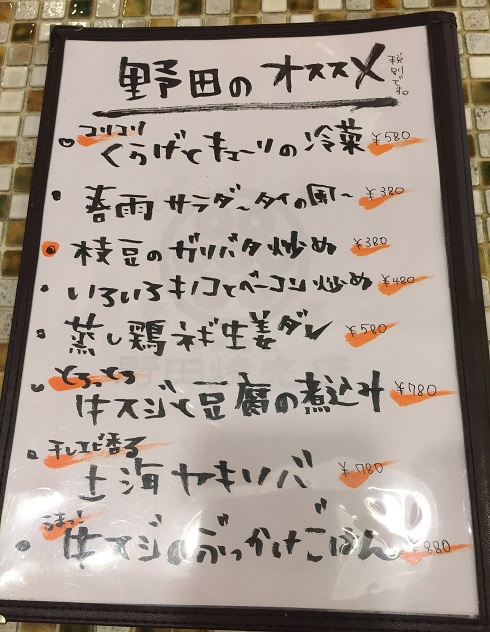 野田のオススメ
税別です。
コリコリ
くらげとキューリの冷菜 ¥580
春雨サラダ〜タイの風〜 ¥380
枝豆のガリバタ炒め ¥380
いろいろキノコとベーコン炒め ¥480
蒸し鶏ネギ生姜ダレ ¥580
とろーとろ
牛スジと豆腐の煮込み ¥780
干しエビ香る
上海ヤキソバ ¥780
うまっ!
牛スジのぶっかけごはん ¥880